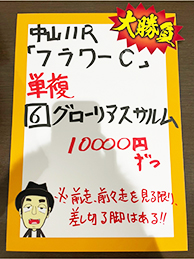 大勝負
中山11R
「フラワーC」
単複
6 グローリアスサルム
10000円
ずつ
※前走、前々走を見る限り、
差し切る脚はある!!